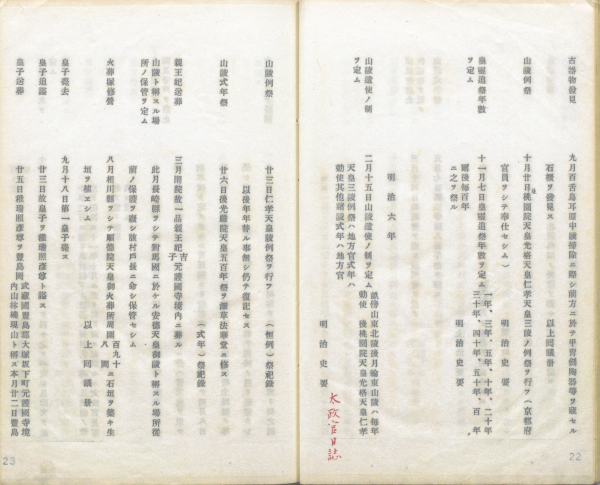 古器物發見
九月百舌鳥耳原中陵掃除ニ際シ前方ニ於テ甲冑劒陶器等ヲ藏セル
石槨ヲ發見ス
以上同議册
山陵例祭
十月廿日桃園院天皇光格天皇仁孝天皇三陵ノ例祭ヲ行フ(京都府
官員ヲシテ奉仕セシム)
明治史要
皇靈追祭年數
ヲ定ム
十一月七日皇靈追祭年數ヲ定ム
一年、三年、五年、十年、二十年
三十年、四十年、五十年、百年
爾後毎百年
ニ之ヲ祭ル
明治史要
明治六年
山陵遣使ノ制
ヲ定ム
二月十五日山陵遣使ノ制ヲ定ム
畝傍山東北陵後月輪東山陵ハ毎年
勅使 後桃園院天皇光格天皇仁孝
天皇三陵例祭ハ地方官式年ハ
勅使其他諸陵式年ハ地方官
明治史要
太政官日誌
22
山陵例祭
廿三日仁孝天皇陵例祭ヲ行フ
(恒例)祭祀錄
以後年年替ル事無シ仍テ復記セス
山陵式年祭
廿六日後光嚴院天皇五百年祭ヲ深草法華堂ニ修ス
(式年)祭祀錄
親王妃送葬
三月閑院故一品親王妃吉子元護國寺境內ニ葬ル
山陵ト稱スル場
所ノ保管ヲ定ム
此月長崎縣ヲシテ對馬國ニ於ケル安德天皇御陵ト稱スル場所從
前ノ保護ヲ廢シ該村戶長ニ命シ保管セシム
火葬塚修營
八月相川縣ヲシテ順德院天皇御火葬所周圍
百九十
八間
ニ石垣ヲ築キ生
垣ヲ植ヱシム
以上同議册
皇子薨去
九月十八日第一皇子薨ス
皇子追謚
廿三日故皇子ヲ稚瑞照彥尊ト謚ス
皇子送葬
廿五日稚瑞照彥尊ヲ豐島岡
武藏國豐島郡大塚坂下町元護國寺境
內山林總現山ト稱ス本月廿二日豐島
23